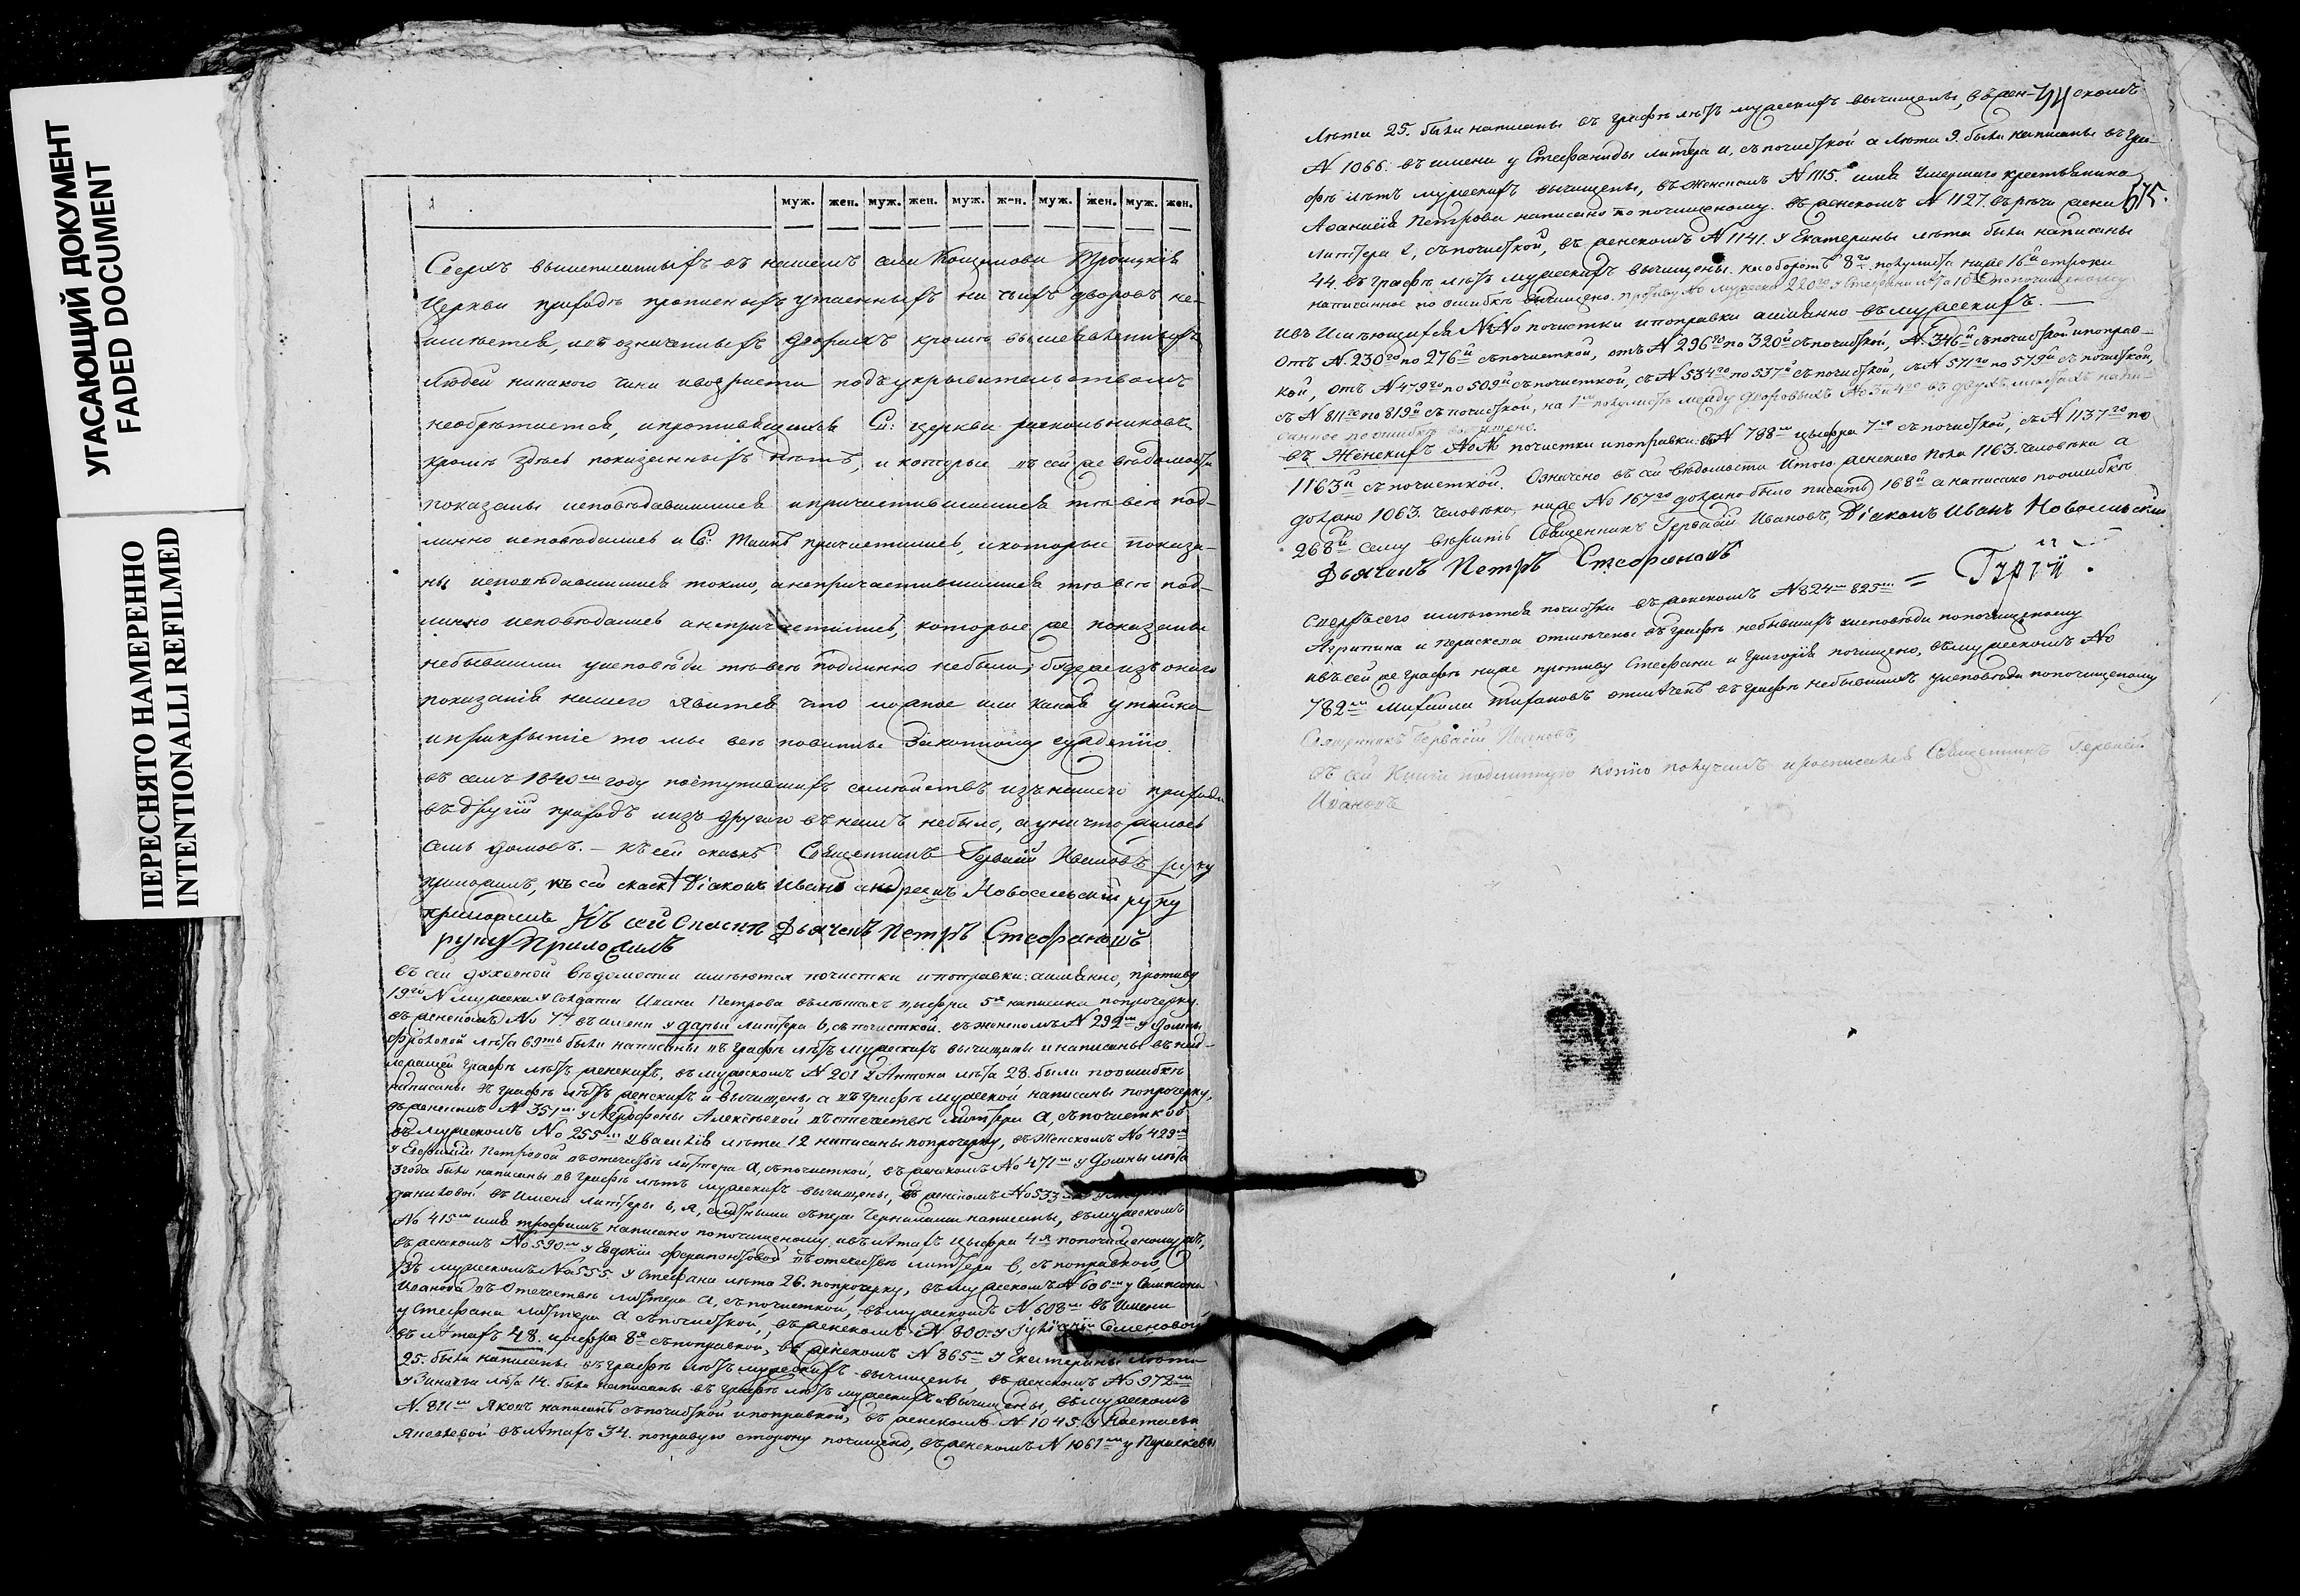 УГАСАЮЩИЙ ДОКУМЕНТ
FADED DOCUMENT
ПЕРЕСНЯТО НАМЕРЕННО
INTENTIONALLI REFILMED
муж. жен. муж. жен. муж. жен. муж. жен. муж. жен.
Сверхъ вышеписанныхъ въ нашемъ селѣ Троицкія
Церкви приходѣ прописныхъ утаенныхъ ни чьихъ дворовъ не-
имѣется, и въ означенныхъ дворахъ кромѣ вышеявленныхъ
людей никакого чина и возраста подъ укрывательствомъ
необрѣтается, и противящихся С: церкви раскольниковъ
кромѣ здѣсь показанныхъ нѣтъ, и которые въ сей же вѣдомости
показаны исповѣдавшимися и причастившимися тѣ всѣ под-
линно исповѣдались и Св: Таинъ причастились, и которые показа-
ны исповѣдавшимися токмо, а непричастившимися тѣ всѣ под-
линно исповѣдались а непричастились, которые же показаны
небывшими у исповѣди тѣ всѣ подлинно небыли; буде же изъ онаго
показанія нашего явится что ложное или какая утайка
и прикрытіе то мы всѣ повинны законному сужденію.
въ семъ 1840мъ году поступившихъ семействъ изъ нашего прихода
въ другій приходъ и изъ другого въ нашъ небыло, а уничтожилось
семь домовъ. — Къ сей сказкѣ Священникъ Гервасій Ивановъ руку
приложилъ, къ сей сказкѣ Діаконъ Иванъ Андреевъ Новосельскій руку
приложилъ Къ сей сказкѣ Дьячекъ Петръ Стефановъ
руку приложилъ
въ сей духовной вѣдомости имѣются почистки и поправки: а имянно, противу
19го N мужеска у Солдата Ивана Петрова въ лѣтахъ цыфра 5я написана попрочерку.
въ женскомъ No 74 въ имени у Дарьи литера ь, съ почисткой. въ женскомъ N 292мъ у Домны
Фроловой лѣта 69ть были написаны въ графѣ лѣтъ мужескихъ вычищены и написаны въ над-
лежащей графѣ лѣтъ женскихъ, въ мужескомъ N 201 у Антона лѣта 28. были поошибкѣ
написаны въ графѣ лѣтъ женскихъ и вычищены а въ графѣ мужеской написаны попрочерку,
въ женскомъ N 351мъ у Агрофены Алексѣевой въ отечествѣ литера а, съ почисткой
въ мужескомъ No 255мъ у Василія лѣта 12 написаны попрочерку, въ Женскомъ No 429мъ
у Евфиміи Петровой въ отечествѣ литера а, съ почисткой, въ женскомъ No 471мъ у Домны лѣта
3 года были написаны въ графѣ лѣтъ мужескихъ вычищены, въ женскомъ No 533
Даниловой въ имени литеры ь, я, чернилами написаны, въ мужескомъ
No 415мъ имя Трофимъ написано попочищеному и въ лѣтахъ цыфра 4я попочищеному же,
въ женскомъ No 590мъ у Евдокіи Ферапонтовой въ отечествѣ литера в, съ поправкою,
Въ мужескомъ No 555. у Стефана лѣта 26. попрочерку, въ мужескомъ N 606мъ у Сампсона
Иванова въ Отечествѣ литера а, съ почисткой, въ мужескомъ N 608мъ въ имени
у Стефана литера а съ почисткой, въ женскомъ N 800. у Семеновой
въ лѣтахъ 48. цыфра 8я съ поправкой, въ женскомъ N 865мъ у Екатерины лѣта
25. были написаны въ графѣ лѣтъ мужескихъ вычищены въ женскомъ No 972мъ
у Зиновіи лѣта 14. были написаны въ графѣ лѣтъ мужескихъ вычищены, въ мужескомъ
N. 811мъ Яковъ написанъ съ почисткой и поправкой, въ женскомъ N. 1045. у Настасьи
Яковлевой въ лѣтахъ 34. поправую сторону почищено, въ женскомъ N 1061мъ у Парасковьи
лѣта 25. были написаны въ графѣ лѣтъ мужескихъ вычищены, въ женскомъ
N 1066. въ имени у Стефаниды литера и, съ почисткой а лѣта 9. были написаны въ гра-
фѣ лѣтъ мужескихъ вычищены, въ женскомъ N 1115. имя умершаго крестьянина
575.
Аѳанасія Петрова написано попочищеному. въ женскомъ N 1127. въ рѣчи жена
литера е, съ почисткой, въ женскомъ N 1141. у Екатерины лѣта были написаны
44. въ графѣ лѣтъ мужескихъ вычищены. на оборотѣ 8го полулиста ниже 16й строки
написанное по ошибкѣ вычищено. противу No мужеска 220го у Стефана лѣта 10 попочищеному
и въ имѣющихся NoNo почистки и поправки а имянно въ мужескихъ. —
отъ N. 230го по 276й съ почисткой, отъ N 296го по 320й съ почисткой, N. 346й съ почисткой и поправ-
кой, отъ N 479го по 509й съ почисткой, съ N 534го по 537й съ почисткой, съ N 571го по 579й съ почисткой,
съ N 811го по 819й съ почисткой, на 1мъ полулистѣ между дворовыхъ No 3 и 4го въ двухъ мѣстахъ напи-
санное поошибкѣ вычищено.
въ Женскихъ NoNo почистки и поправки: въ N 788мъ цыфра 7я съ почисткой, съ N 1137го по
1163й съ почисткой. Означено въ сей вѣдомости Итого женскаго пола 1163. человѣка а
должно 1063. человѣка, ниже No 167го должно было писать 168й а написано поошибкѣ
268й сему вѣритъ Священникъ Гервасій Ивановъ, Діаконъ Иванъ Новосельскій
Дьячекъ Петръ Стефановъ
сверхъ сего имѣются почистки въ женскомъ N 824мъ 825мъ =
Агрипина и Параскева отмѣчены въ графѣ небывшихъ у исповѣди попочищеному
и въ сей же графѣ ниже противу Стефана и Григорія почищено, въ мужескомъ No
782мъ Михаилъ отмѣченъ въ графѣ небывшихъ у исповѣди попочищеному
Священникъ Гервасій Ивановъ
въ сей Книги подлинную копію получилъ и росписался Священникъ Гервасій
Ивановъ